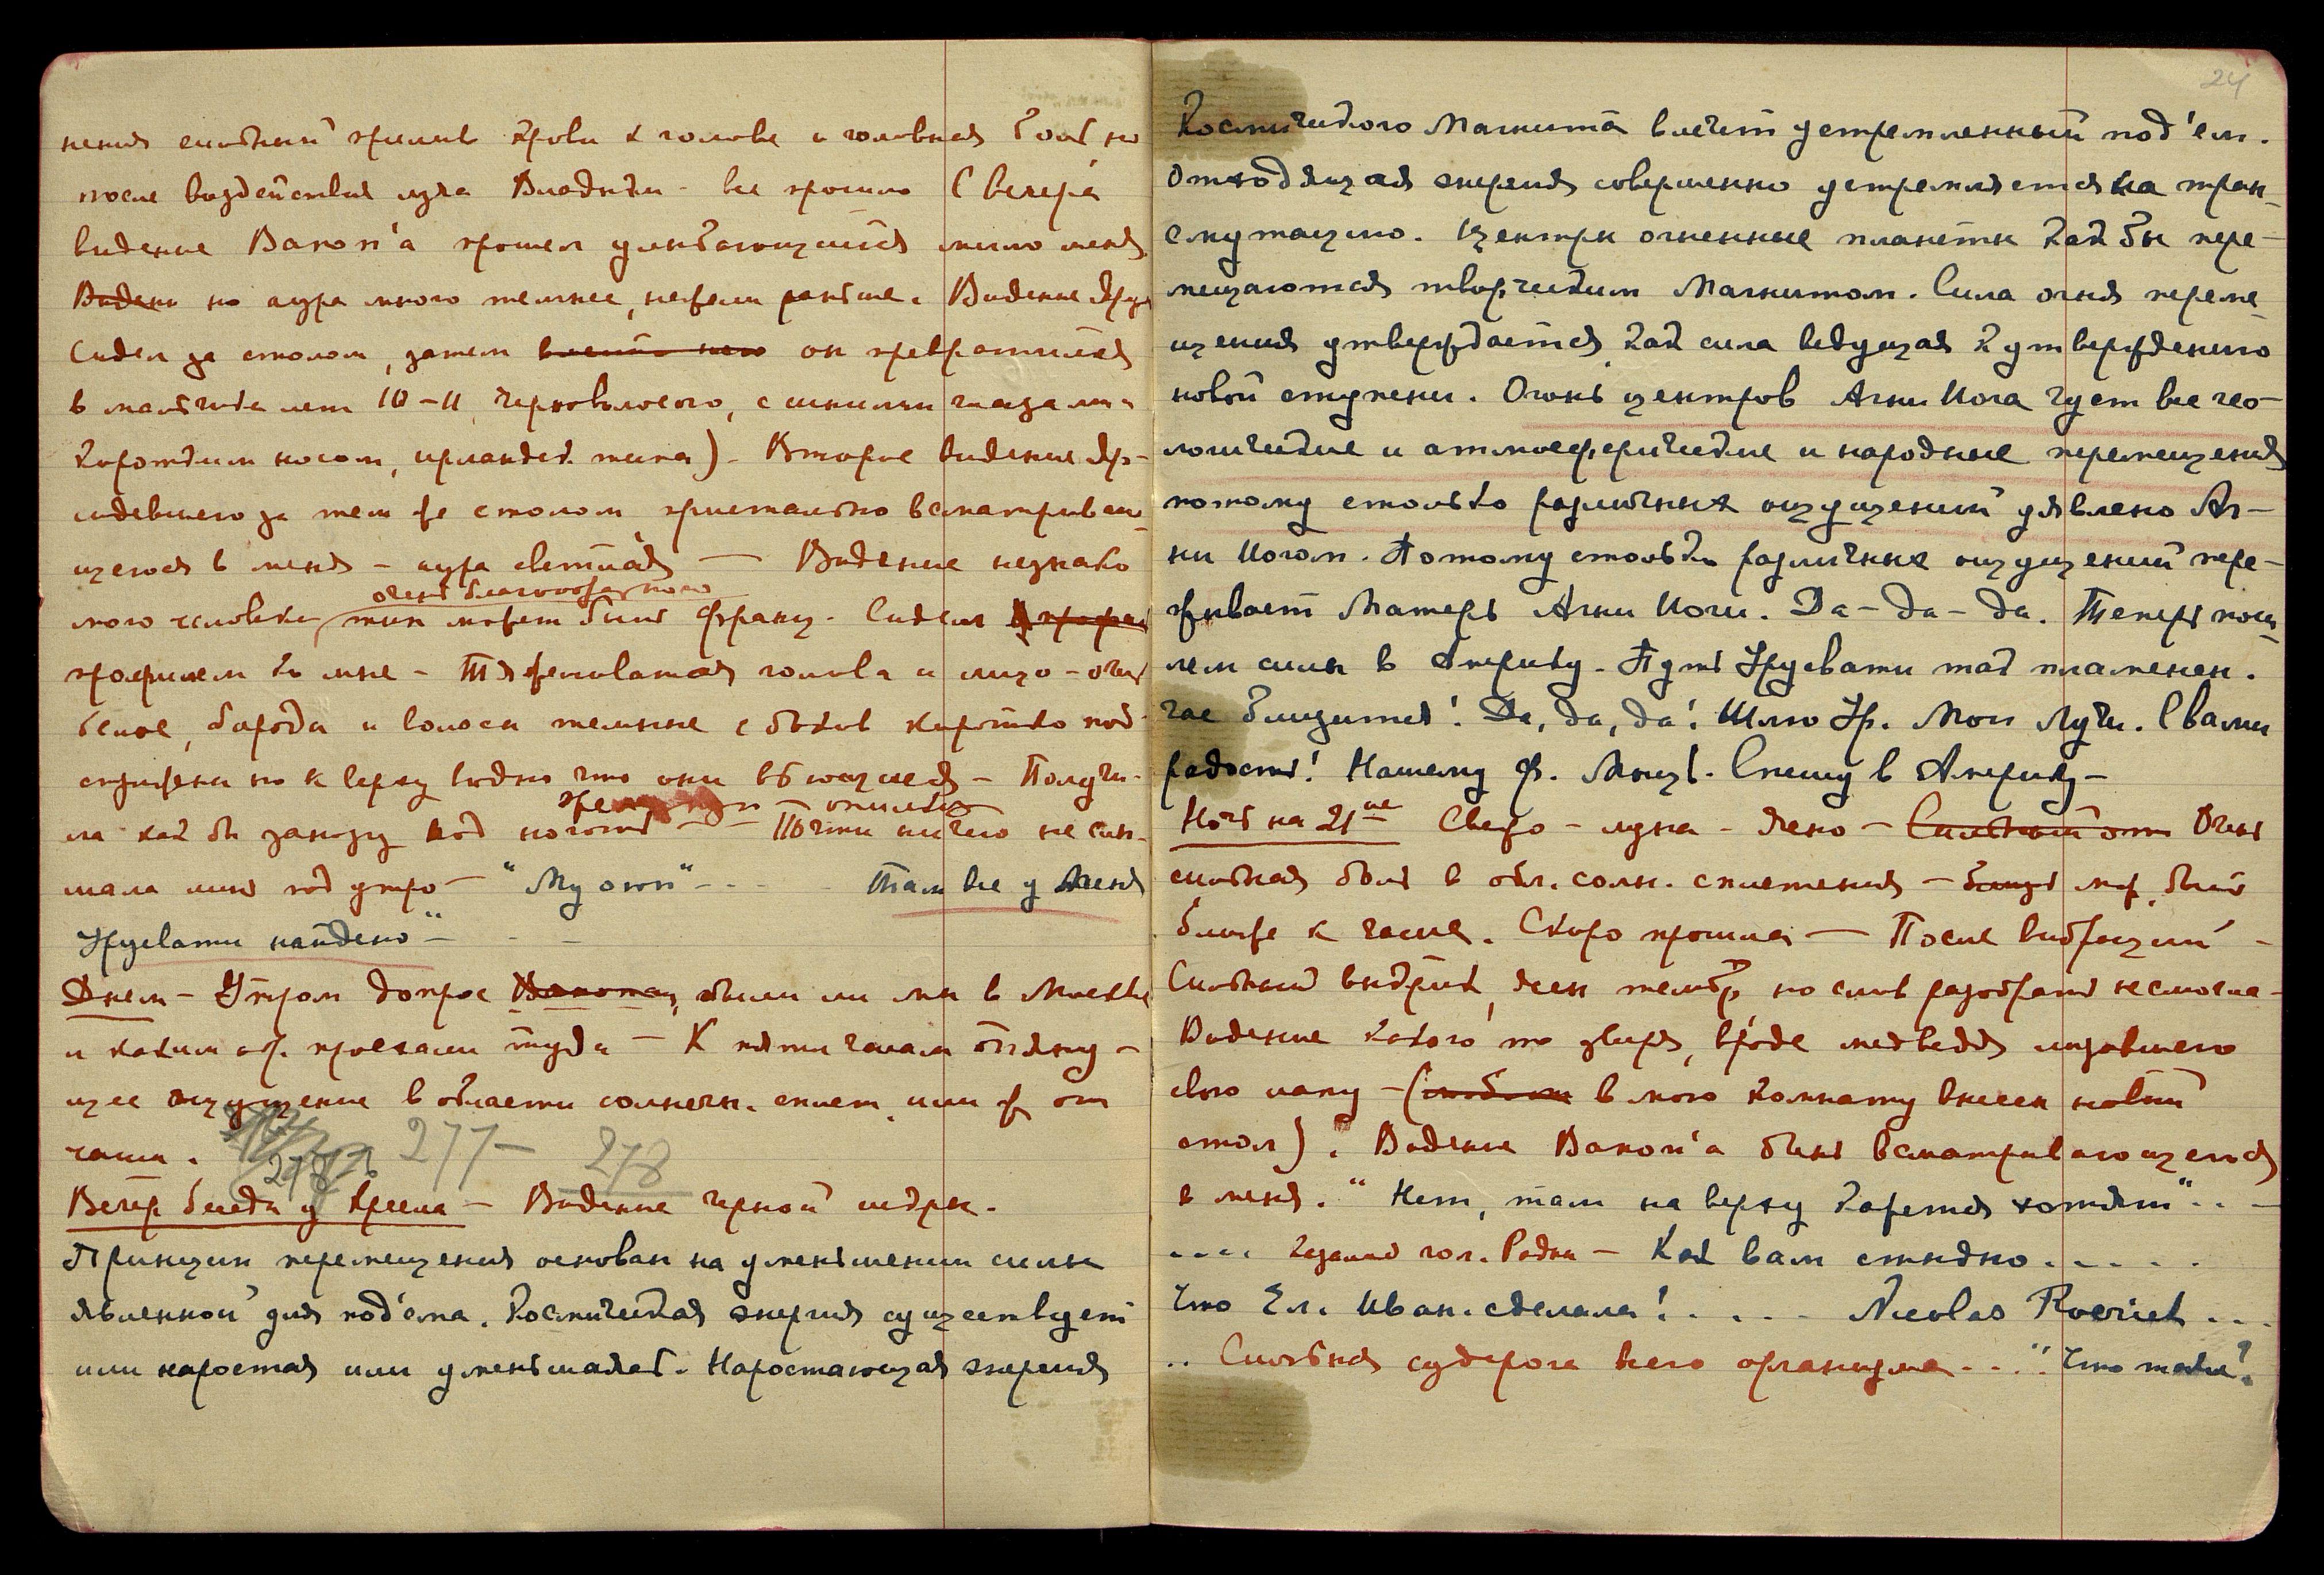 нения сильный прилив крови к голове и головная боль но
после воздействия луча Владыки - все прошло С вечера
видение Вакон'а прошел улыбающийся мимо меня
Виден но аура много темнее, нежели раньше. Видение Друг
Сидел за столом, затем он превратился
в мальчика лет 10-11 черноволосого, с синими глазами и
коротким носом, ирландск. типа). Второе видение Др-
сидевшего за тем же столом пристально всматриваю-
щегося в меня - аура светлая — Видение незнако
очень благообразного
мого человека, тип может быть франц. Сидел
профилем ко мне - Тяжеловатая голова и лицо - очень
белое, борода и волосы темные с боков коротко под-
стрижены но к верху видно что они вьющиеся - Получи-
ла как бы занозу под ноготь — Почти ничего не слы-
шала лишь под утро — "My own" - - - Там все у Меня
Урусвати найдено" - - -
Днем - Утром допрос были ли мы в Москве
и каким обр. проехали туда — К пяти часам отянящу-
щее ощущение в области солнечн. сплет. или ж от
чаши. 277 - 278
278
Вечер беседы у кресла - Видение черной искры.
Принцип перемещения основан на уменьшении силы
явленной для под'ема. Космическая энергия существует
или наростая или уменьшаясь. Наростающая энергия
24
Космического Магнита влечет устремленный под'ем.
Отходящая энергия совершенно устремляется на тран-
смутацию. Центры огненные планеты как бы пере-
мещаются творческим Магнитом. Сила огня переме-
щения утверждается как сила ведущая к утверждению
новой ступени. Огонь центров Агни Йога чует все гео-
логические и атмосферические и народные перемещения
потому столько различных ощущений уявлено Аг-
ни Йогом. Потому столько различных ощущений пере-
живает Матерь Агни Йоги. Да - да - да. Теперь пош-
лем силы в Америку. Путь Урусвати так пламенен.
Час близится! Да, да, да! Шлю Ур. Мои Лучи. С вами
радость! Нашему Ф. Мощь. Спешу в Америку -
Ночь на 21ое Свежо - луна - Ясно - Сильный от Очень
сильная боль в обл. солн. сплетения - м.ж. быть
ближе к чаше. Скоро прошла — После вибраций -
Сильный выкрик, ясен тембр, но слов разобрать не смогла -
Видение какого то зверя, вроде медведя лизавшего
свою лапу - ( в мою комнату внесен новый
стол). Видение Вакон'а опять всматривающегося
в меня. "Нет, там на верху кажется хотят" . . -
.... голос. Радны - Как вам стыдно . . . . .
Что Ел. Иван. сделала! . . . . Nicolas Roerich ...
.. Сильная судорога всего организма - . . " Что такое?